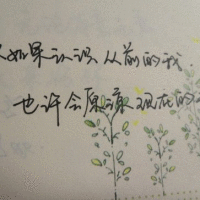 如果认识从前的我
也许会原谅现在的